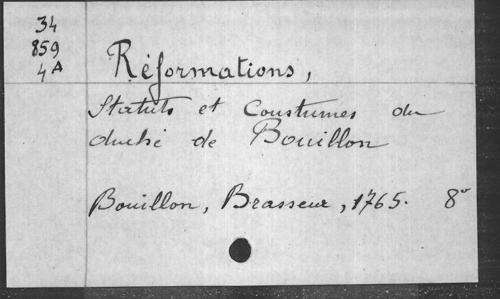 34
859
4A
Réformations,
Statuts et Coustumes du
duché de Bouillon
Bouillon, Brasseur, 1765. 8º